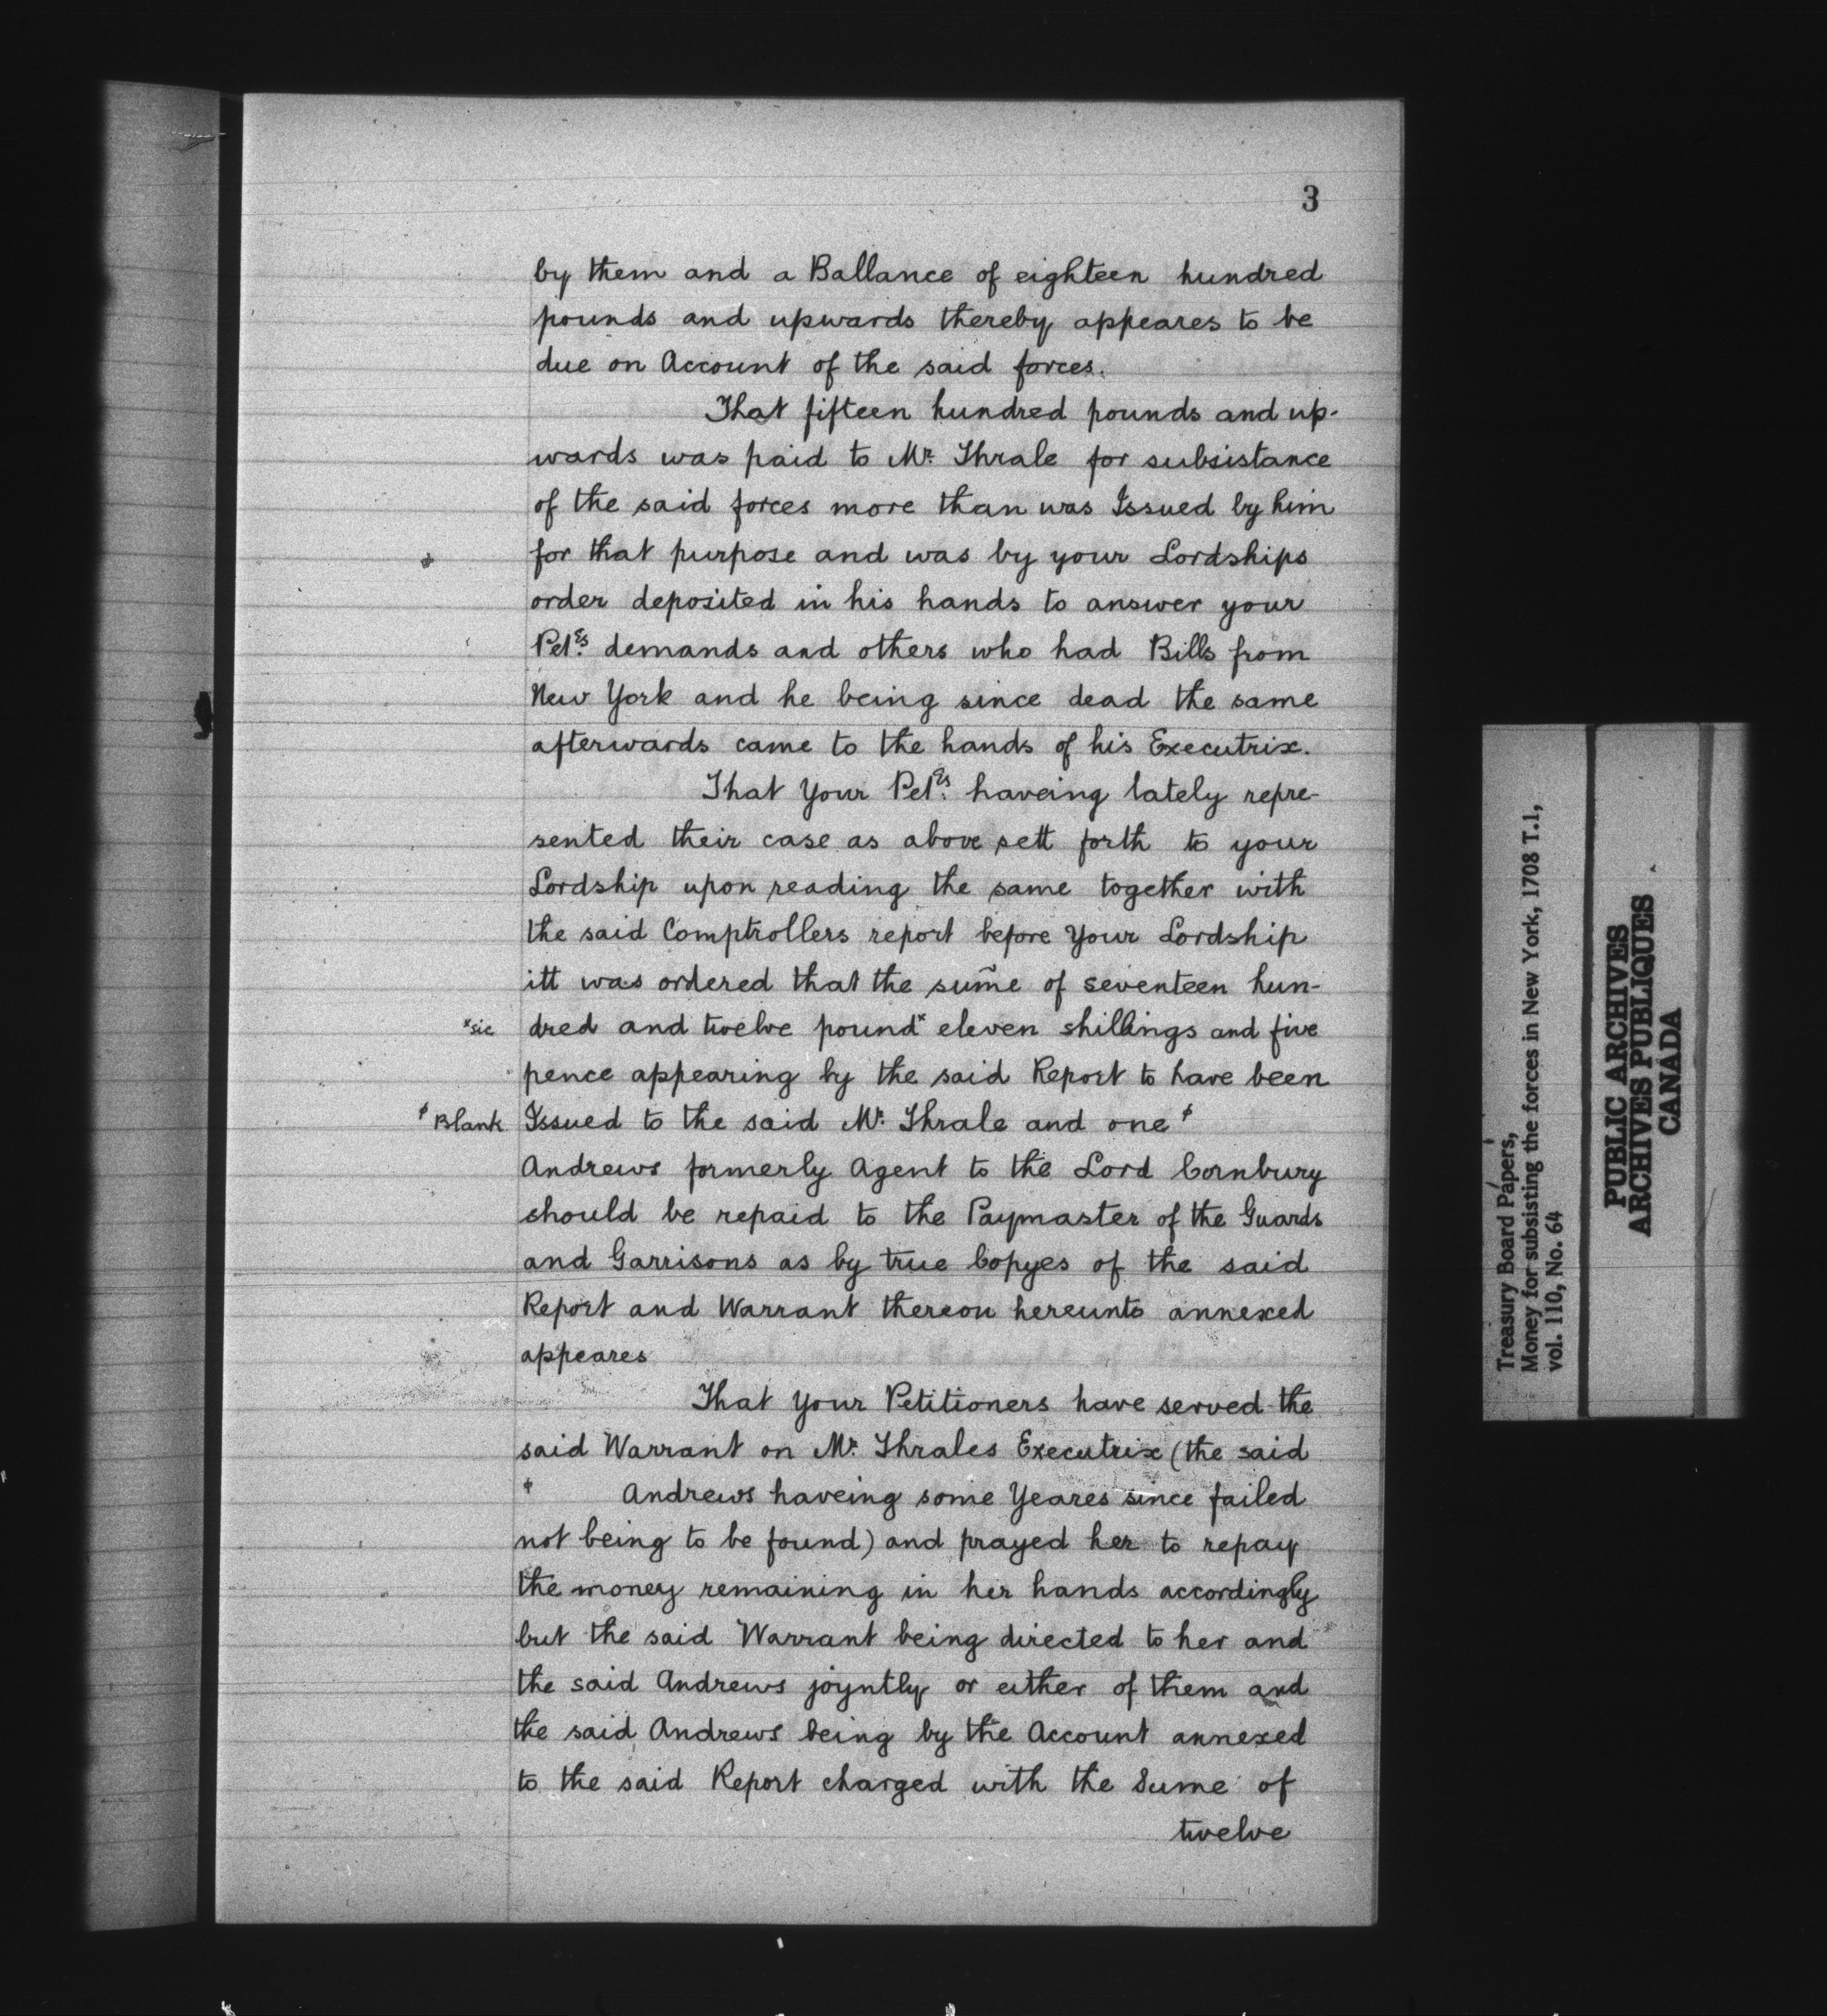 3
by them and a Ballance of eighteen hundred
pounds and upwards thereby appeares to be
due on Account of the said forces.
That fifteen hundred pounds and up-
wards was paid to Mr. Thrale for subsistance
of the said forces more than was Issued by him
for that purpose and was by your Lordships
order deposited in his hands to answer your
Petrs. demands and others who had Bills from
New York and he being since dead the same
afterwards came to the hands of his Executrix.
That Your Petrs. haveing lately repre-
sented their case as above sett forth to your
Lordship upon reading the same together with
the said Comptrollers report before Your Lordship
itt was ordered that the sum̃e of seventeen hun-
*sic dred and twelve pound* eleven shillings and five
pence appearing by the said Report to have been
ϕ Blank Issued to the said Mr. Thrale and one ϕ
Andrews formerly Agent to the Lord Cornbury
should be repaid to the Paymaster of the Guards
and Garrisons as by true Copyes of the said
Report and Warrant thereon hereunto annexed
appeares
That Your Petitioners have served the
said Warrant on Mr. Thrales Executrix (the said
ϕ Andrews haveing some Yeares since failed
not being to be found) and prayed her to repay
the money remaining in her hands accordingly
but the said Warrant being directed to her and
the said Andrews joyntly or either of them and
the said Andrews being by the Account annexed
to the said Report charged with the Sume of
twelve
Treasury Board Papers,
Money for subsisting the forces in New York, 1708 T.1,
vol. 110, No. 64
PUBLIC ARCHIVES
ARCHIVES PUBLIQUES
CANADA